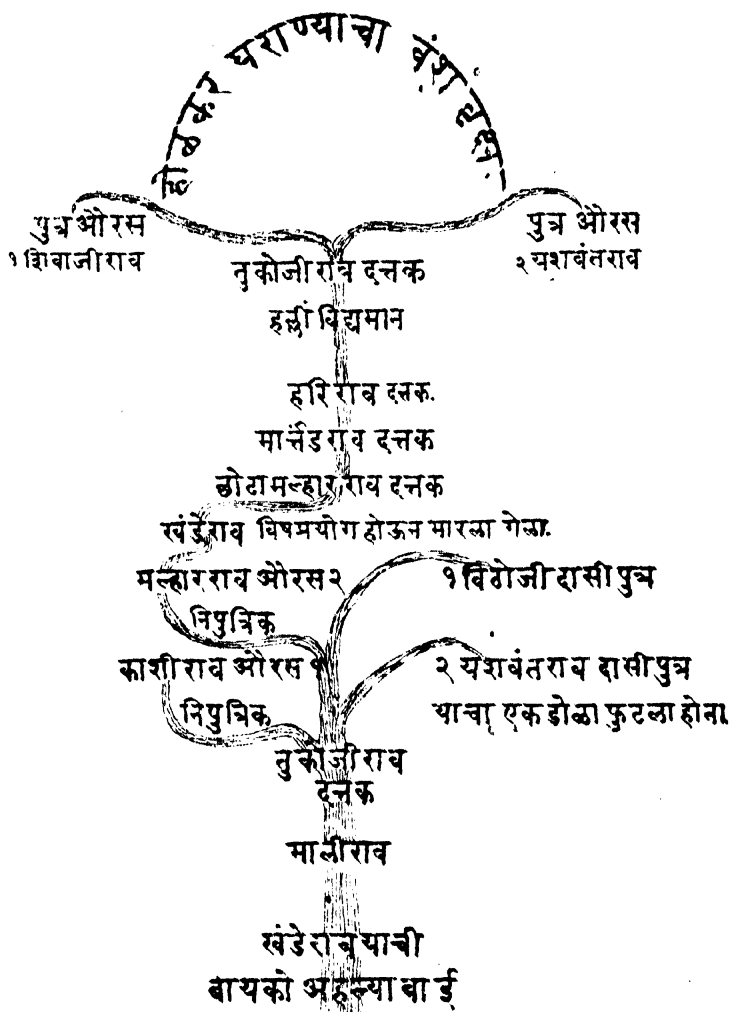 होळकर घराण्याचा वंशवृक्ष.
पुत्र औरस
१ शिवाजीराव
पुत्र औरस
२ यशवंतराव
तुकोजीराव दत्तक
हल्लीं विद्यमान
हरिराव दत्तक.
मार्त्तंडराव दत्तक
छोटामल्हारराव दत्तक
खंडेराव विषमयोग होऊन मारला गेला.
मल्हारराव औरस २
निपुत्रिक
१ विठोजी दासीपुत्र
काशीराव औरस १
निपुत्रिक
२ यशवंतराव दासीपुत्र
याचा एक डोळा फुटला होता.
तुकोजीराव
दत्तक
मालीराव
खंडेराव याची
बायको अहल्याबाई